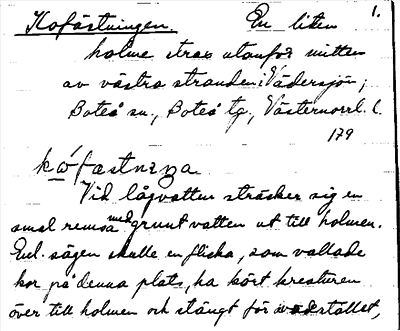 1.
Kofästningen. En liten
holme strax utanför mitten
av västra stranden i Vädersjön;
Boteå sn., Boteå tg, Västernorrl. l.
179
Vid lågvatten sträcker sig en
smal remsa med grunt vatten ut till holmen.
Enl. sägen skulle en flicka, som vallade
kor på denna plats, ha kört kreaturen
över till holmen och stängt för vadstället,